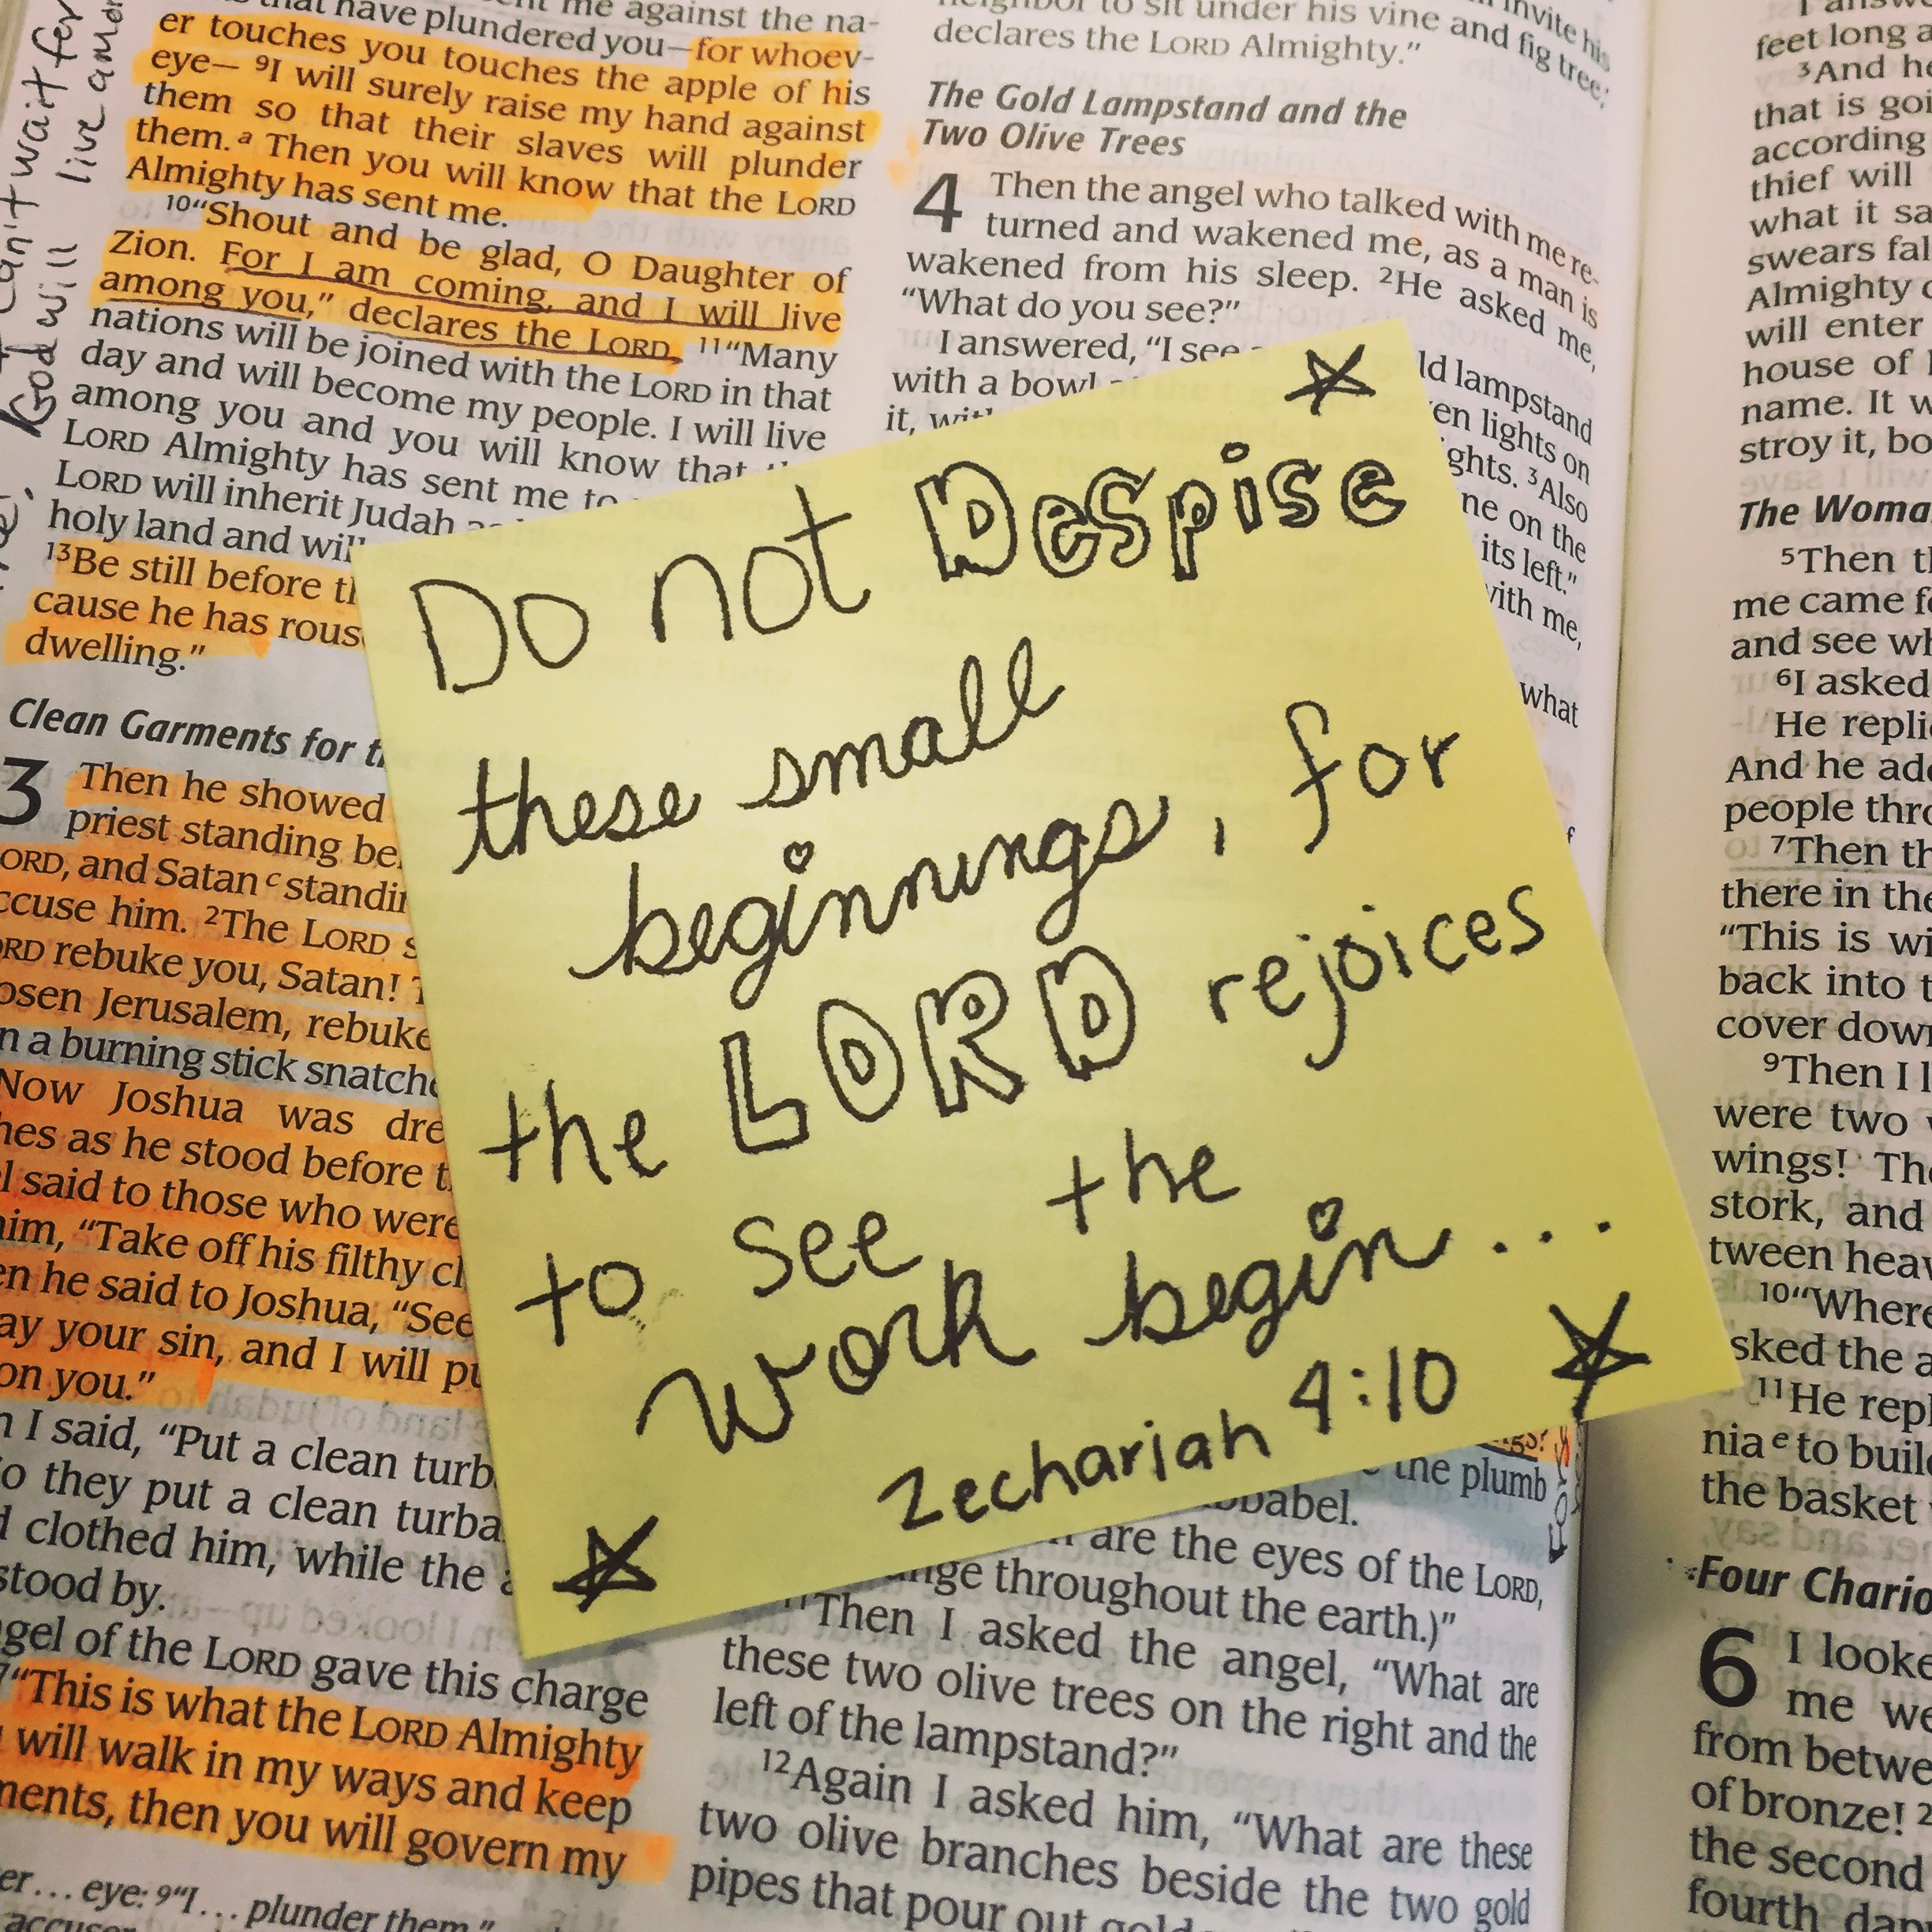 can't wait for
God will live among
that have plundered you—for whoev-
er touches you touches the apple of his
eye— 9I will surely raise my hand against
them so that their slaves will plunder
them.a Then you will know that the LORD
Almighty has sent me.
10“Shout and be glad, O Daughter of
Zion. For I am coming, and I will live
among you,” declares the LORD. 11“Many
nations will be joined with the LORD in that
day and will become my people. I will live
among you and you will know that
LORD Almighty has sent me to
LORD will inherit Judah
holy land and will
13Be still before
cause he has rous
dwelling.”
Clean Garments for
3 Then he showed
priest standing
LORD, and Satanc standing
accuse him. 2The LORD
LORD rebuke you, Satan!
chosen Jerusalem, rebuke
a burning stick snatche
Now Joshua was
as he stood before
said to those who were
him, “Take off his filthy
he said to Joshua, “See
your sin, and I will
on you.”
I said, “Put a clean
they put a clean
clothed him, while the
stood by.
angel of the LORD gave this charge
7“This is what the LORD Almighty
will walk in my ways and keep
then you will govern my
eye: 9“I . . . plunder them.”
neighbor to sit under his vine and fig tree,’
declares the LORD Almighty.”
The Gold Lampstand and the
Two Olive Trees
4 Then the angel who talked with me re-
turned and wakened me, as a man is
wakened from his sleep. 2He asked me,
“What do you see?”
I answered, “I see lampstand
with a bowl lights on
it, 3Also
on the
its left.”
with me,
what
Do not Despise
these small
beginnings, for
the LORD rejoices
to see the
work begin...
Zechariah 4:10
the plumb
are the eyes of the LORD,
throughout the earth.)”
11Then I asked the angel, “What are
these two olive trees on the right and the
left of the lampstand?”
12Again I asked him, “What are these
two olive branches beside the two gold
pipes that pour out
feet long
3And he
that is
according
thief will
what it
swears
Almighty
will enter
house of
name. It
The Woma
5Then
me came
and see
6I asked
He
And he
people
7Then
there in the
“This is
back into
cover down
9Then I
were two
wings!
stork, and
tween
10“Where
asked the
11He
nia e to
the basket
Four
6 I
me
from
of bronze! 2
the second
fourth